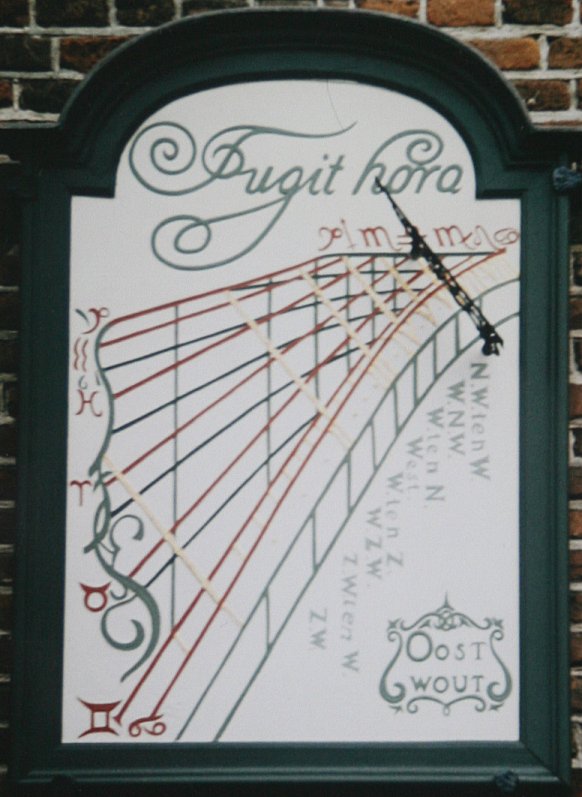 Fugit hora
N.W.ten W
W.N.W.
W.ten N.
West
W.ten Z.
W Z W.
Z.W.ten W.
ZW.
OOST
WOUT